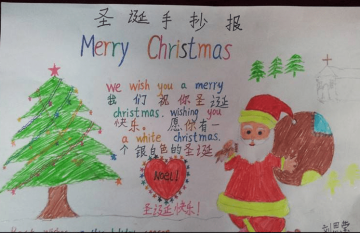 圣诞手抄报
Merry Christmas
We wish you a merry
我们祝你圣诞
christmas. wishing you
快乐。愿你有一
a white christmas.
个银白色的圣诞
Noel!
圣诞快乐!